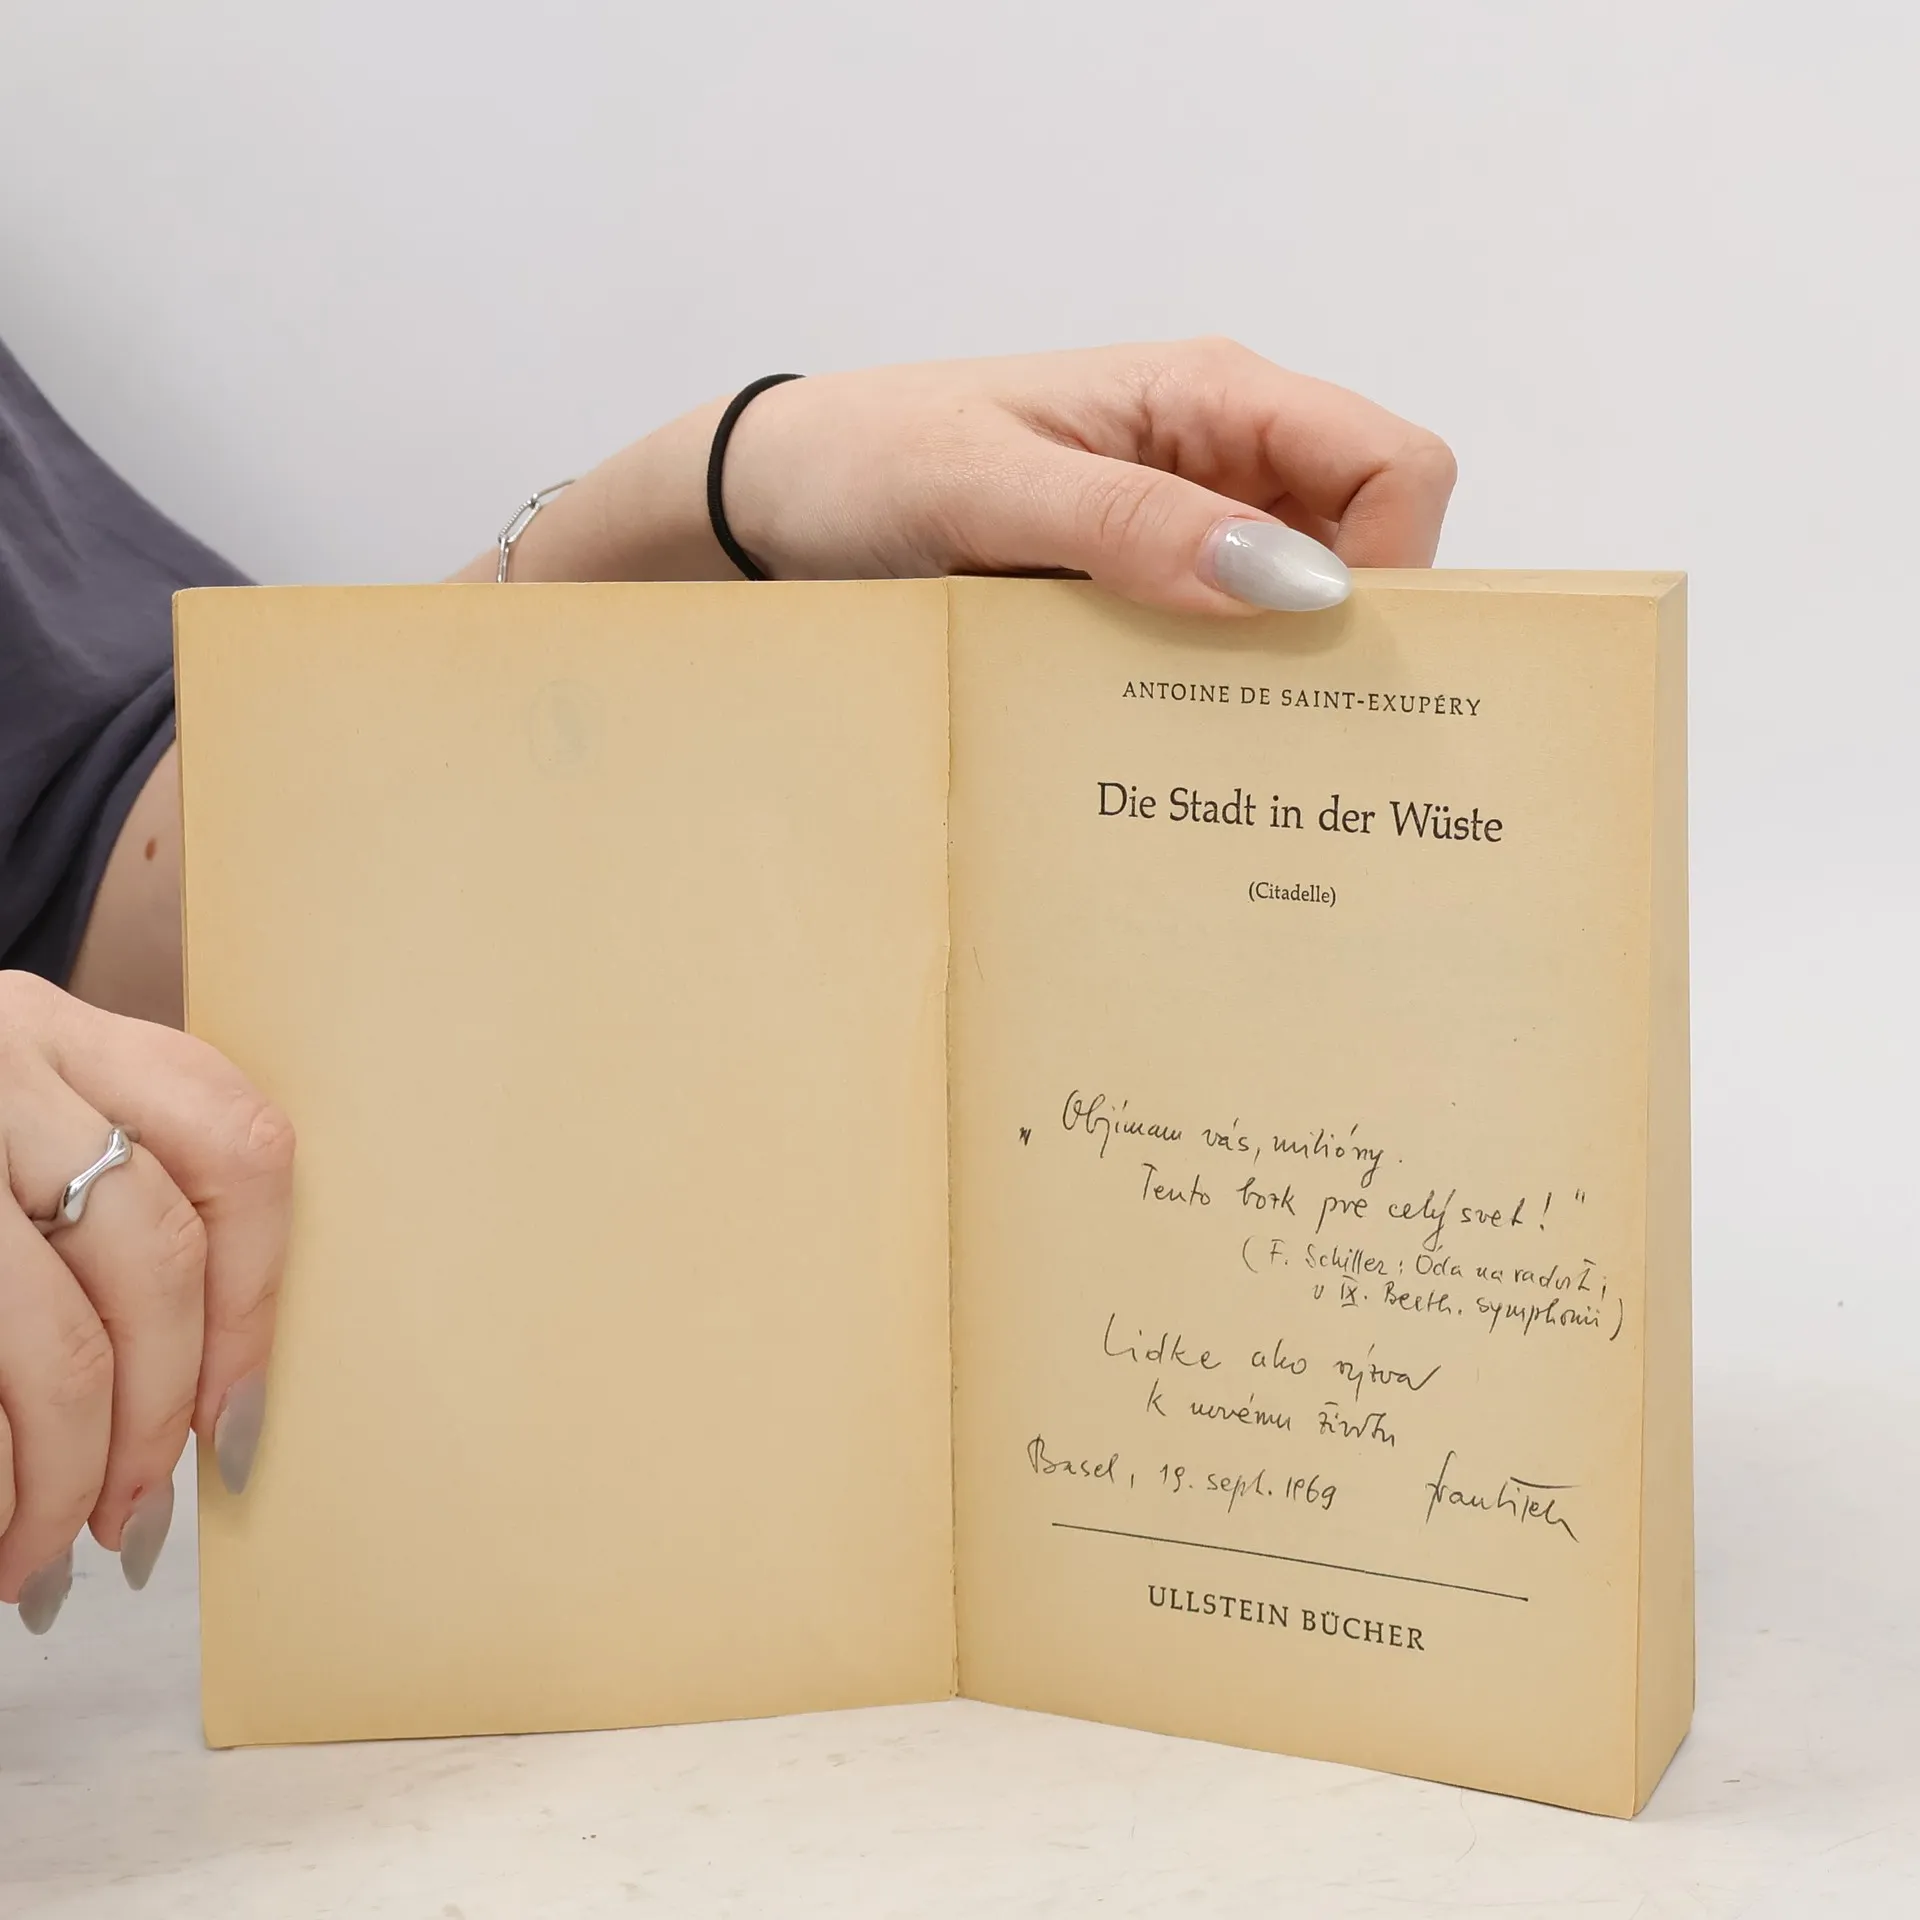 ANTOINE DE SAINT-EXUPÉRY
Die Stadt in der Wüste
(Citadelle)
„ Objímam vás, milióny.
Tento bozk pre celý svet! "
( F. Schiller: Óda na radosť i
v IX. Beeth. symphonii )
Lidke ako výzva
k novému životu
Basel, 19. sept. 1969 František
ULLSTEIN BÜCHER